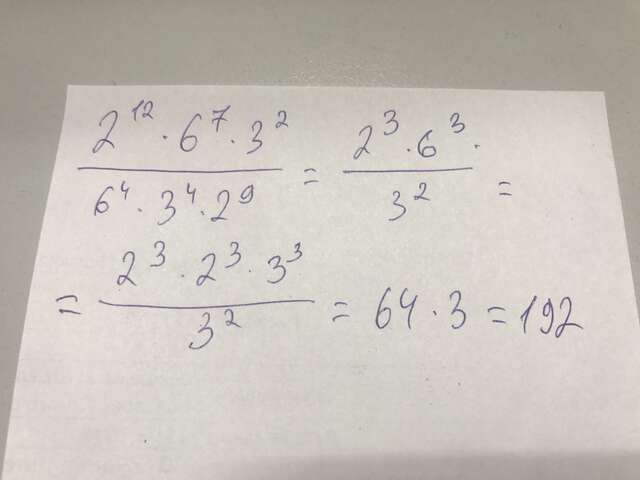 2^12 · 6^7 · 3^2 / 6^4 · 3^4 · 2^9 = 2^3 · 6^3 · / 3^2 =
= 2^3 · 2^3 · 3^3 / 3^2 = 64 · 3 = 192